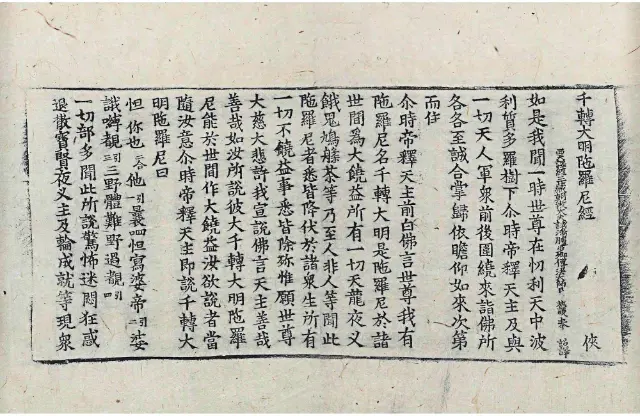 千轉大明陁羅尼經 俠
奉 詔譯
如是我聞一時世尊在忉利天中波
利質多羅樹下尒時帝釋天主及與
一切天人軍衆前後圍繞來詣佛所
各各至誠合掌歸依瞻仰如來次第
而住
尒時帝釋天主前白佛言世尊我有
陁羅尼名千轉大明是陁羅尼於諸
世間爲大饒益所有一切天龍夜叉
餓鬼鳩茶等乃至人非人等聞此
陁羅尼者悉皆降伏於諸衆生所有
一切不饒益事悉皆除弥惟願世尊
大慈大悲許我宣說佛言天主善哉
善哉如汝所說彼大千轉大明陁羅
尼能於世間作大饒益汝欲說者當
隨汝意尒時帝釋天主即說千轉大
明陁羅尼曰
怛你也二合他一引曩怛寫婆帝二引娑
誐嚩覩三野體難野遏覩四引
一切部多聞此所說驚怖迷悶狂惑
退散寶賢夜叉主及輪成就等現衆